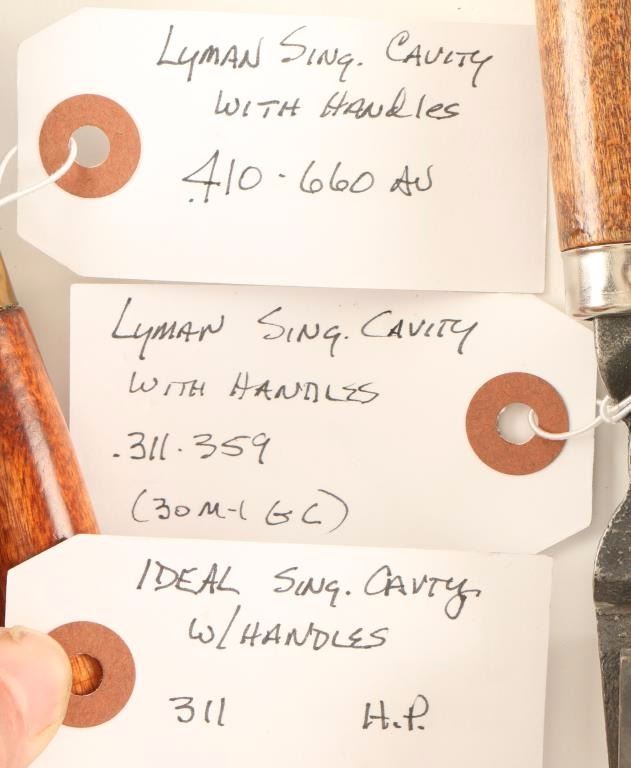 Lyman Sing. Cavity
with Handles
.410-660 AV
Lyman Sing. Cavity
with Handles
.311.359
(30 M-1 GC)
IDEAL Sing. Cavty
w/Handles
311 H.P.